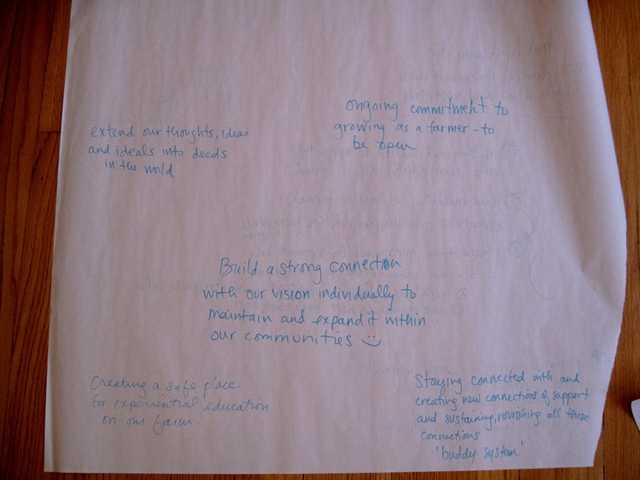 extend our thoughts, ideas
and ideals into deeds
in the world
ongoing commitment to
growing as a farmer - to
be open
Build a strong connection
with our vision individually to
maintain and expand it within
our communities :)
Creating a safe place
for experiential education
on our farm
Staying connected with and
creating new connections of support
and sustaining, nourishing all those
connections
'buddy system'